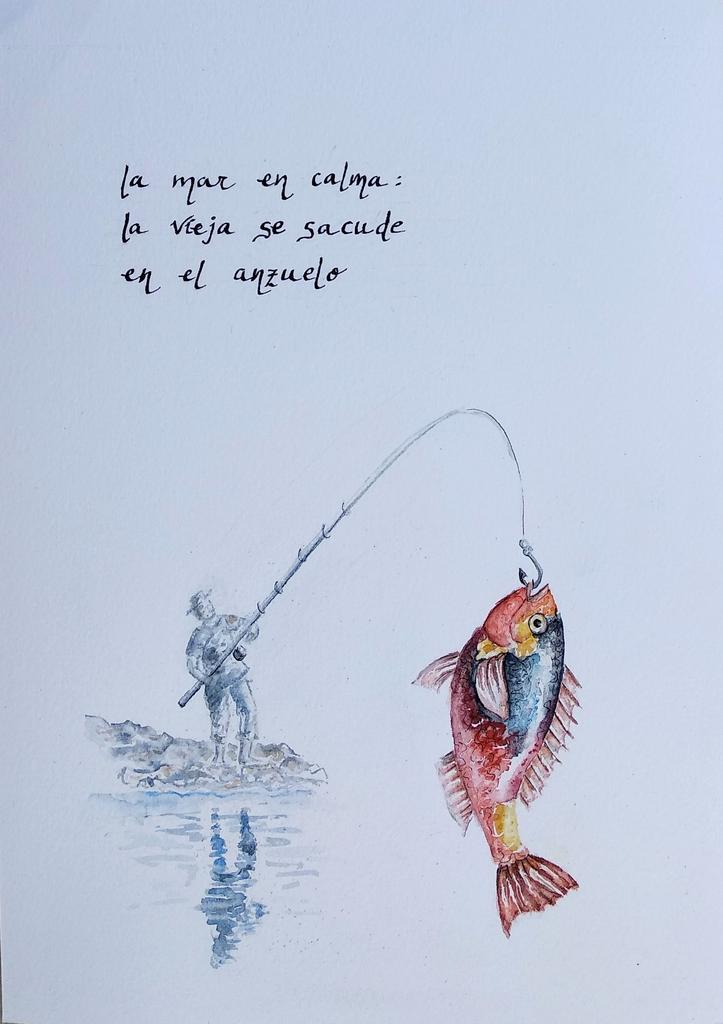 la mar en calma:
la vieja se sacude
en el anzuelo